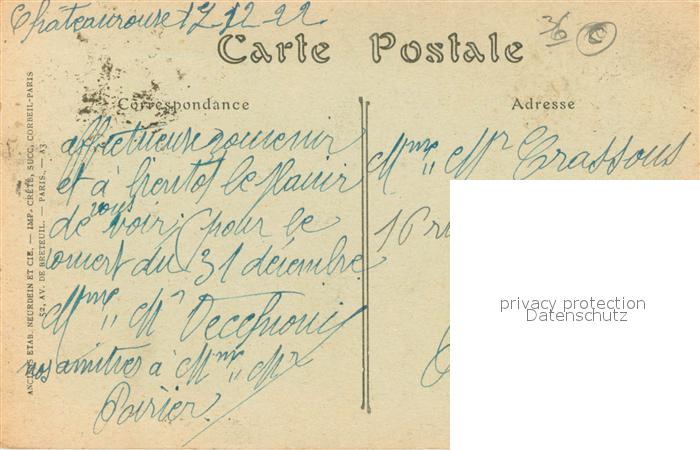 Chateauroux 17 12 22
36
Carte Postale
Correspondance
Adresse
affectueux souvenir
et à bientot le plaisir
de vous voir pour le
concert du 31 décembre
Mme " Mr
nos amities à Mme " Mr
Poirier
Mme " Mr Crassous
16 ru
ANCIENS ETAB. NEURDEIN ET CIE. — IMP. CRÉTÉ, SUCC. CORBEIL-PARIS
52, AV. DE BRETEUIL. — PARIS. — A3
privacy protection
Datenschutz